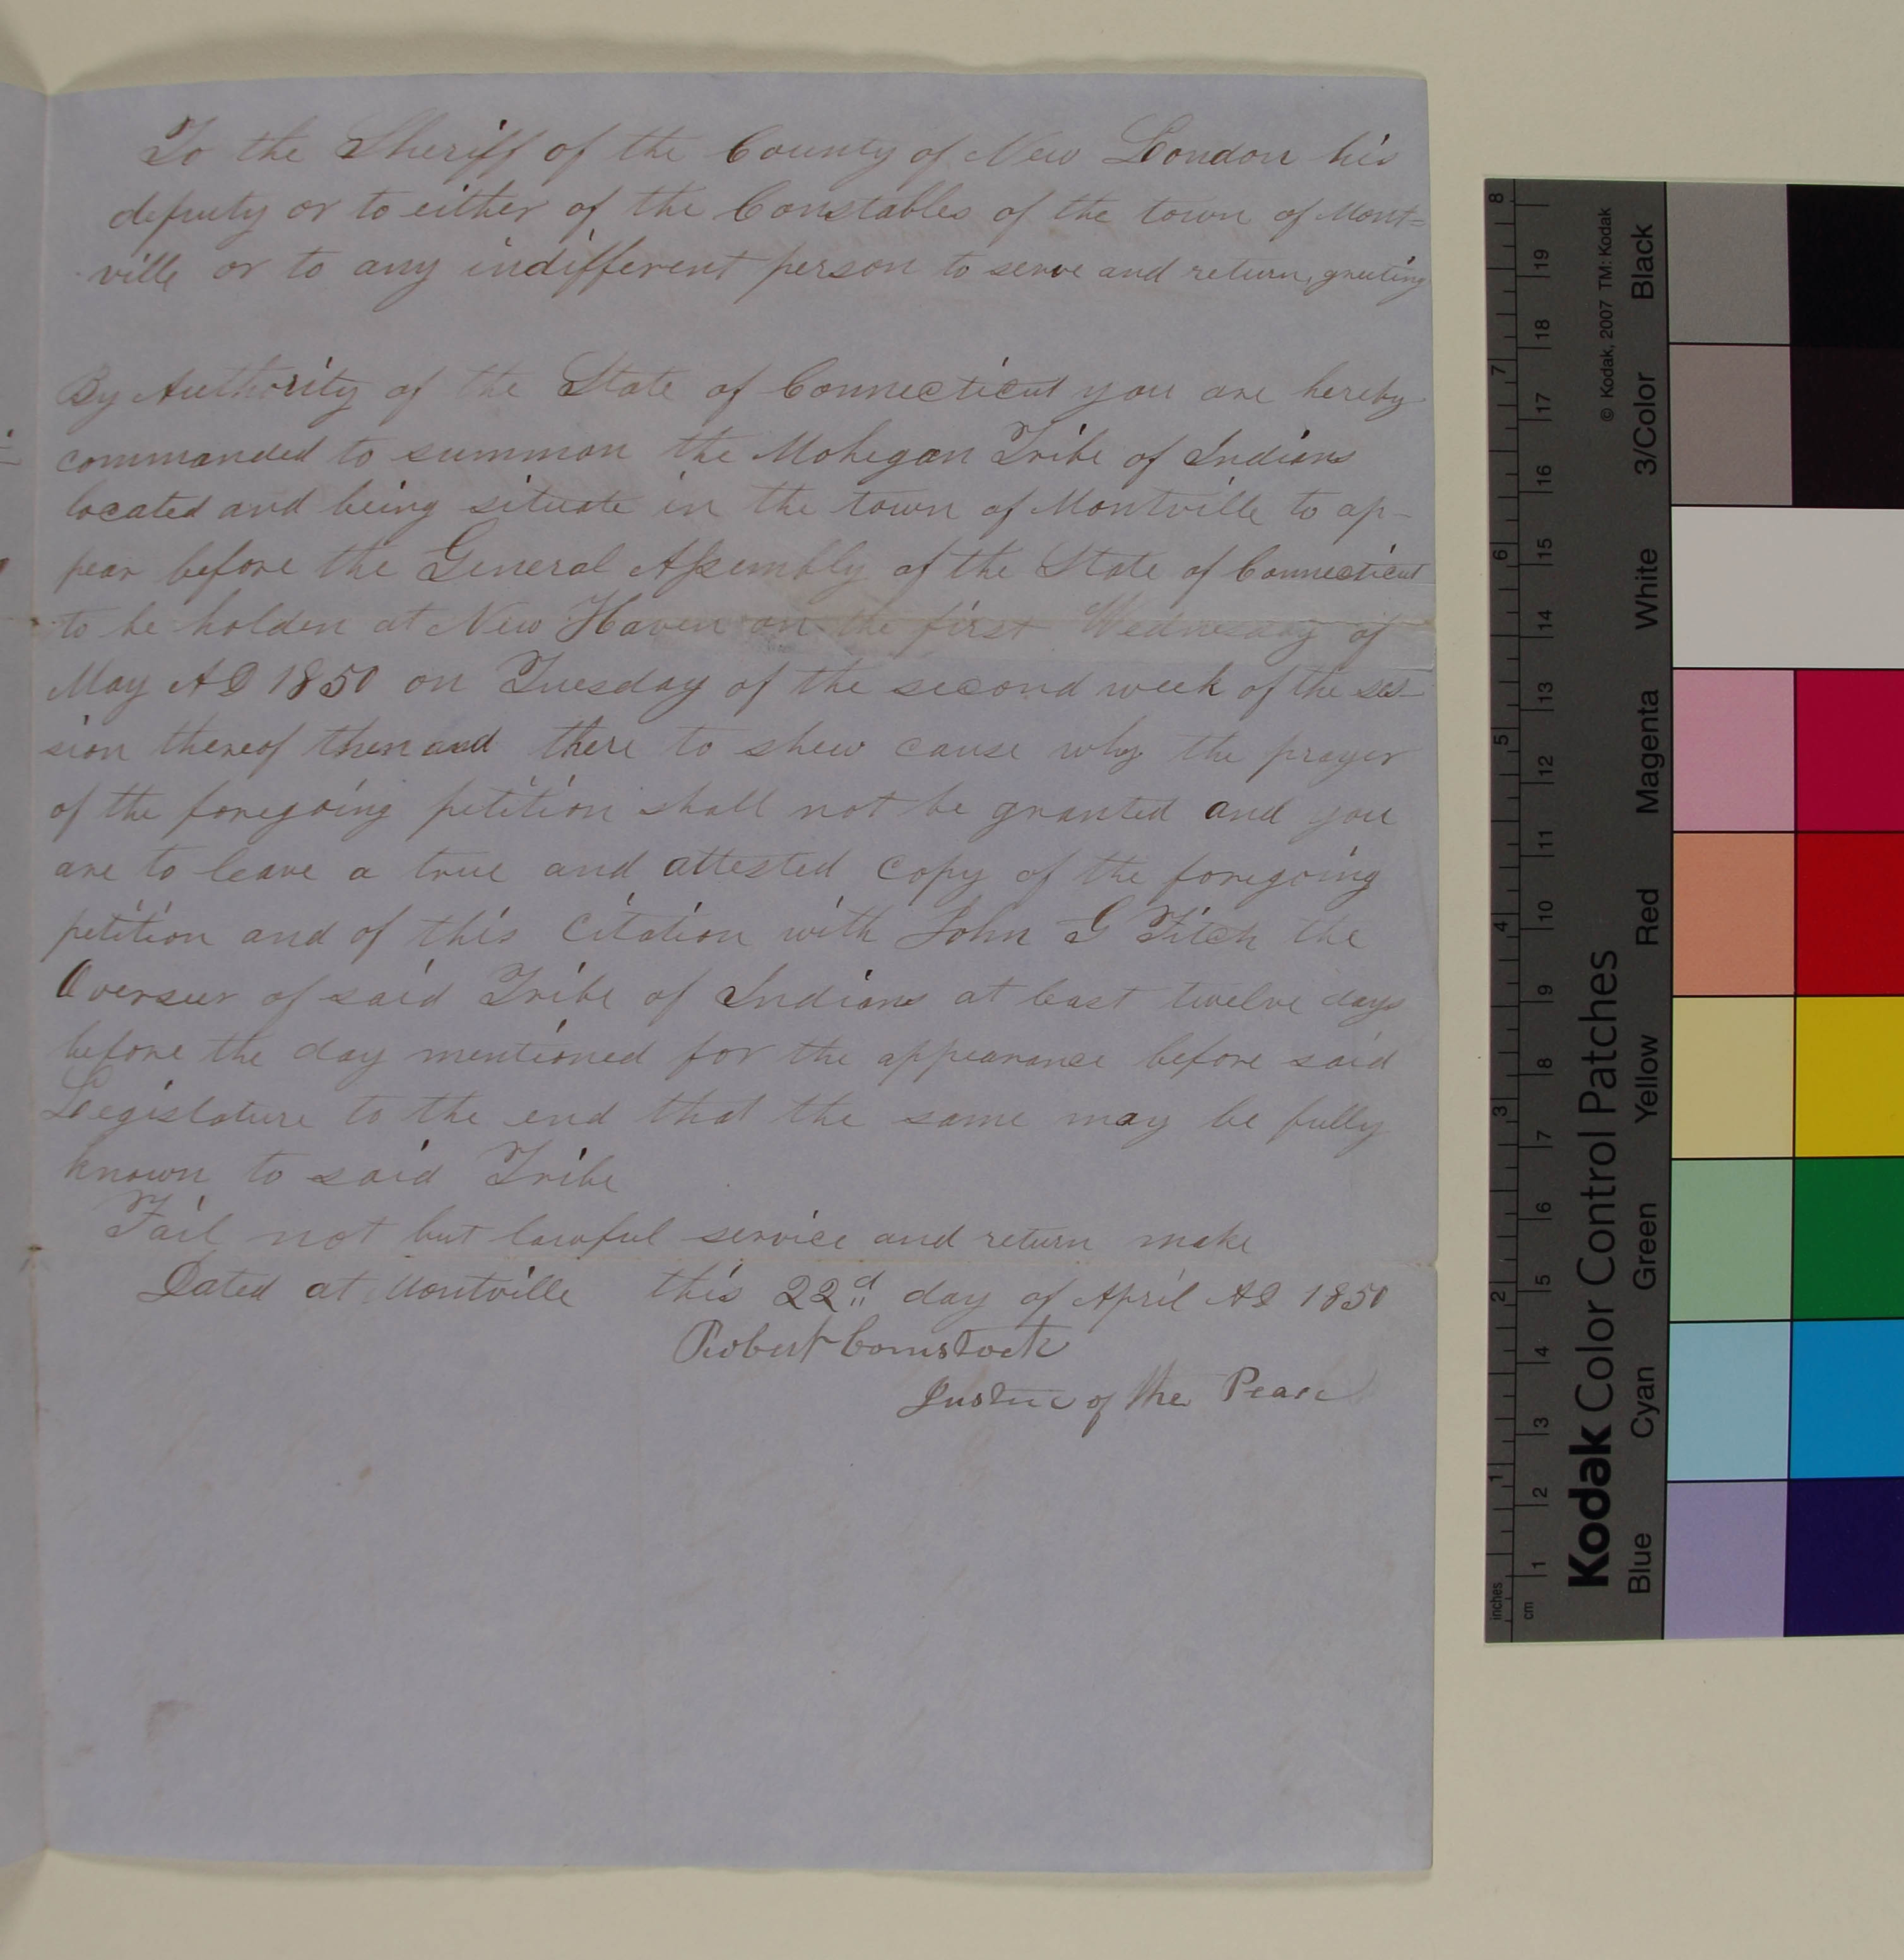 To the Sheriff of the County of New London his
deputy or to either of the Constables of the town of Mont=
ville or to any indifferent person to serve and return, greeting
By Authority of the State of Connecticut you are hereby
commanded to summon the Mohegan Tribe of Indians
located and being situate in the town of Montville to ap-
pear before the General Assembly of the State of Connecticut
to be holden at New Haven on the first Wednesday of
May AD 1850 on Tuesday of the second week of the ses-
sion thereof then and there to shew cause why the prayer
of the foregoing petition shall not be granted and you
are to leave a true and attested copy of the foregoing
petition and of this citation with John G Fitch the
Overseer of said Tribe of Indians at least twelve days
before the day mentioned for the appearance before said
Legislature to the end that the same may be fully
known to said Tribe
Fail not but lawful service and return make
Dated at Montville this 22d day of April AD 1850
Robert Comstock
Justice of the Peace
Kodak Color Control Patches
© Kodak, 2007 TM: Kodak
Blue Cyan Green Yellow Red Magenta White 3/Color Black
inches 1 2 3 4 5 6 7 8
cm 1 2 3 4 5 6 7 8 9 10 11 12 13 14 15 16 17 18 19